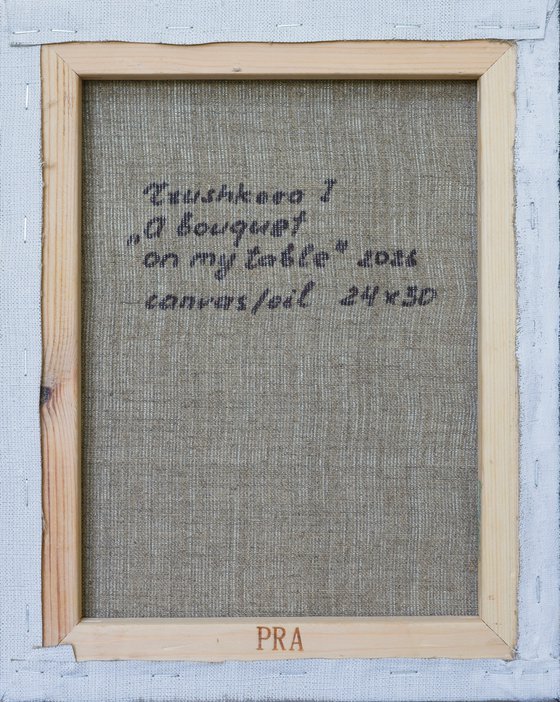 Trushkova I
„A bouquet
on my table" 2026
canvas/oil 24x30
PRA